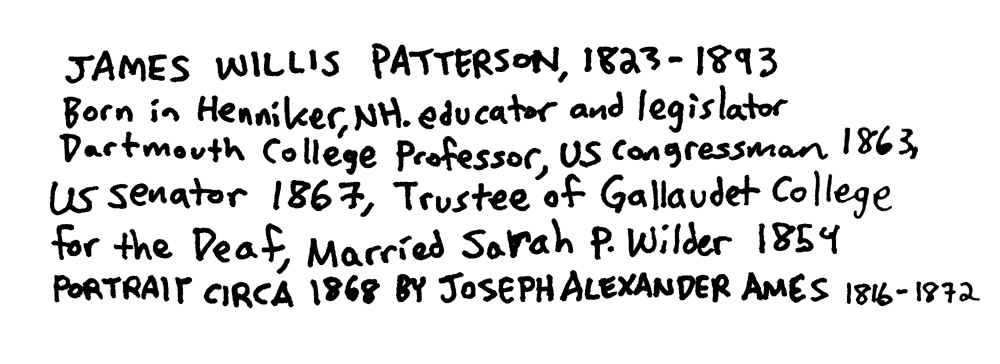 JAMES WILLIS PATTERSON, 1823-1893
Born in Henniker, NH. educator and legislator
Dartmouth College Professor, US Congressman 1863,
US Senator 1867, Trustee of Gallaudet College
for the Deaf, Married Sarah P. Wilder 1854
PORTRAIT CIRCA 1868 BY JOSEPH ALEXANDER AMES 1816-1872